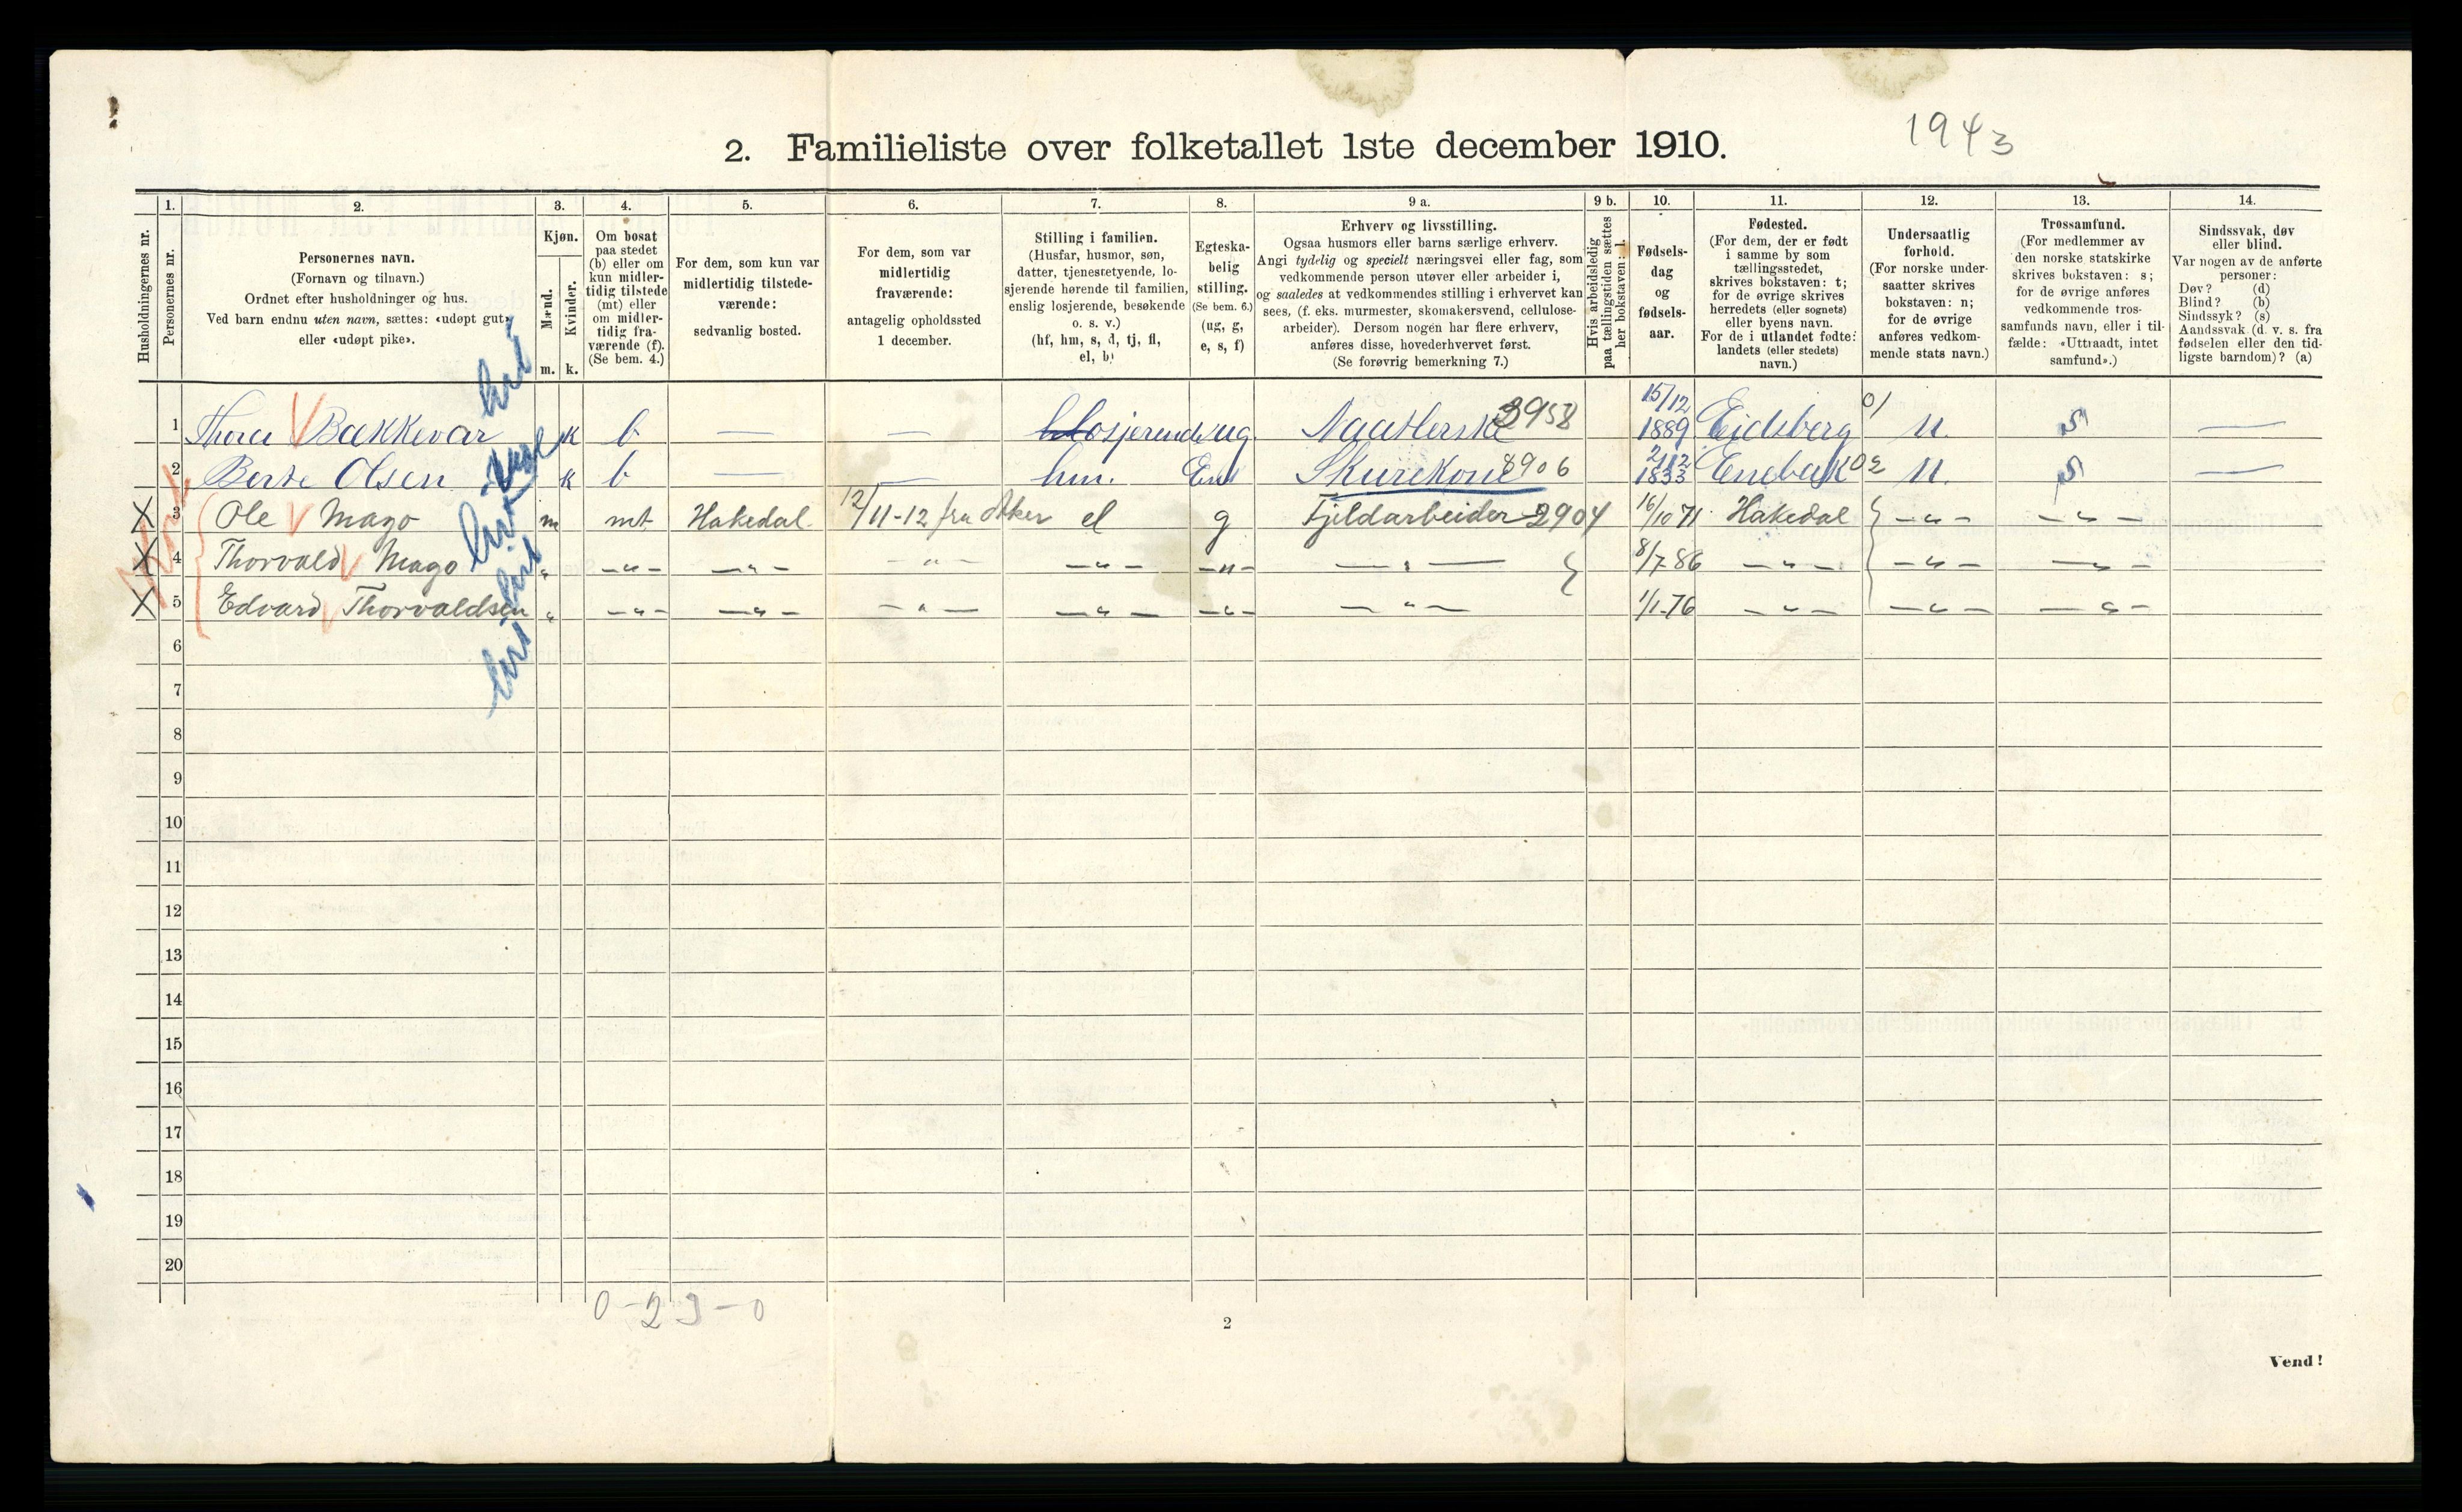 1943
2. Familieliste over folketallet 1ste december 1910.
Husholdningernes nr.
1.
Personernes nr.
2.
Personernes navn.
(Fornavn og tilnavn.)
Ordnet efter husholdninger og hus.
Ved barn endnu uten navn, sættes: «udøpt gut»
eller «udøpt pike».
3.
Kjøn.
Mænd.
Kvinder.
m. k.
4.
Om bosat
paa stedet
(b) eller om
kun midler-
tidig tilstede
(mt) eller
om midler-
tidig fra-
værende (f).
(Se bem. 4.)
5.
For dem, som kun var
midlertidig tilstede-
værende:
sedvanlig bosted.
6.
For dem, som var
midlertidig
fraværende:
antagelig opholdssted
1 december.
7.
Stilling i familien.
(Husfar, husmor, søn,
datter, tjenestetyende, lo-
sjerende hørende til familien,
enslig losjerende, besøkende
o. s. v.)
(hf, hm, s, d, tj, fl,
el, b)
8.
Egteska-
belig
stilling.
(Se bem. 6.)
(ug, g,
e, s, f)
9 a.
Erhverv og livsstilling.
Ogsaa husmors eller barns særlige erhverv.
Angi tydelig og specielt næringsvei eller fag, som
vedkommende person utøver eller arbeider i,
og saaledes at vedkommendes stilling i erhvervet kan
sees, (f. eks. murmester, skomakersvend, cellulose-
arbeider). Dersom nogen har flere erhverv,
anføres disse, hovederhvervet først.
(Se forøvrig bemerkning 7.)
9 b.
Hvis arbeidsledig
paa tællingstiden sættes
her bokstaven: l.
10.
Fødsels-
dag
og
fødsels-
aar.
11.
Fødested.
(For dem, der er født
i samme by som
tællingsstedet,
skrives bokstaven: t;
for de øvrige skrives
herredets (eller sognets)
eller byens navn.
For de i utlandet fødte:
landets (eller stedets)
navn.)
12.
Undersaatlig
forhold.
(For norske under-
saatter skrives
bokstaven: n;
for de øvrige
anføres vedkom-
mende stats navn.)
13.
Trossamfund.
(For medlemmer av
den norske statskirke
skrives bokstaven: s;
for de øvrige anføres
vedkommende tros-
samfunds navn, eller i til-
fælde: «Uttraadt, intet
samfund».)
14.
Sindssvak, døv
eller blind.
Var nogen av de anførte
personer:
Døv? (d)
Blind? (b)
Sindssyk? (s)
Aandssvak (d. v. s. fra
fødselen eller den tid-
ligste barndom)? (a)
1 Thora Bakkevar k b — — Losjerende ug Naatlerske 3958 15/12 1889 Eidsberg 01 n. s —
2 Berte Olsen k b — — hm. Enk Skurekone 8906 21/12 1833 Enebak 02 n. s —
X 3 Ole Mago m mt Hakedal 12/11-12 fra Aker el g Fjeldarbeider 2904 16/10 71 Hakedal —„— —„—
X 4 Thorvald Mago „ —„— —„— —„— —„— —„— —„— 8/7-86 —„— —„— —„—
X 5 Edvard Thorvaldsen „ —„— —„— —„— —„— —„— —„— 1/1-76 —„— —„— —„—
6
7
8
9
10
11
12
13
14
15
16
17
18
19
20
0 - 2 3 - 0
2
Vend!